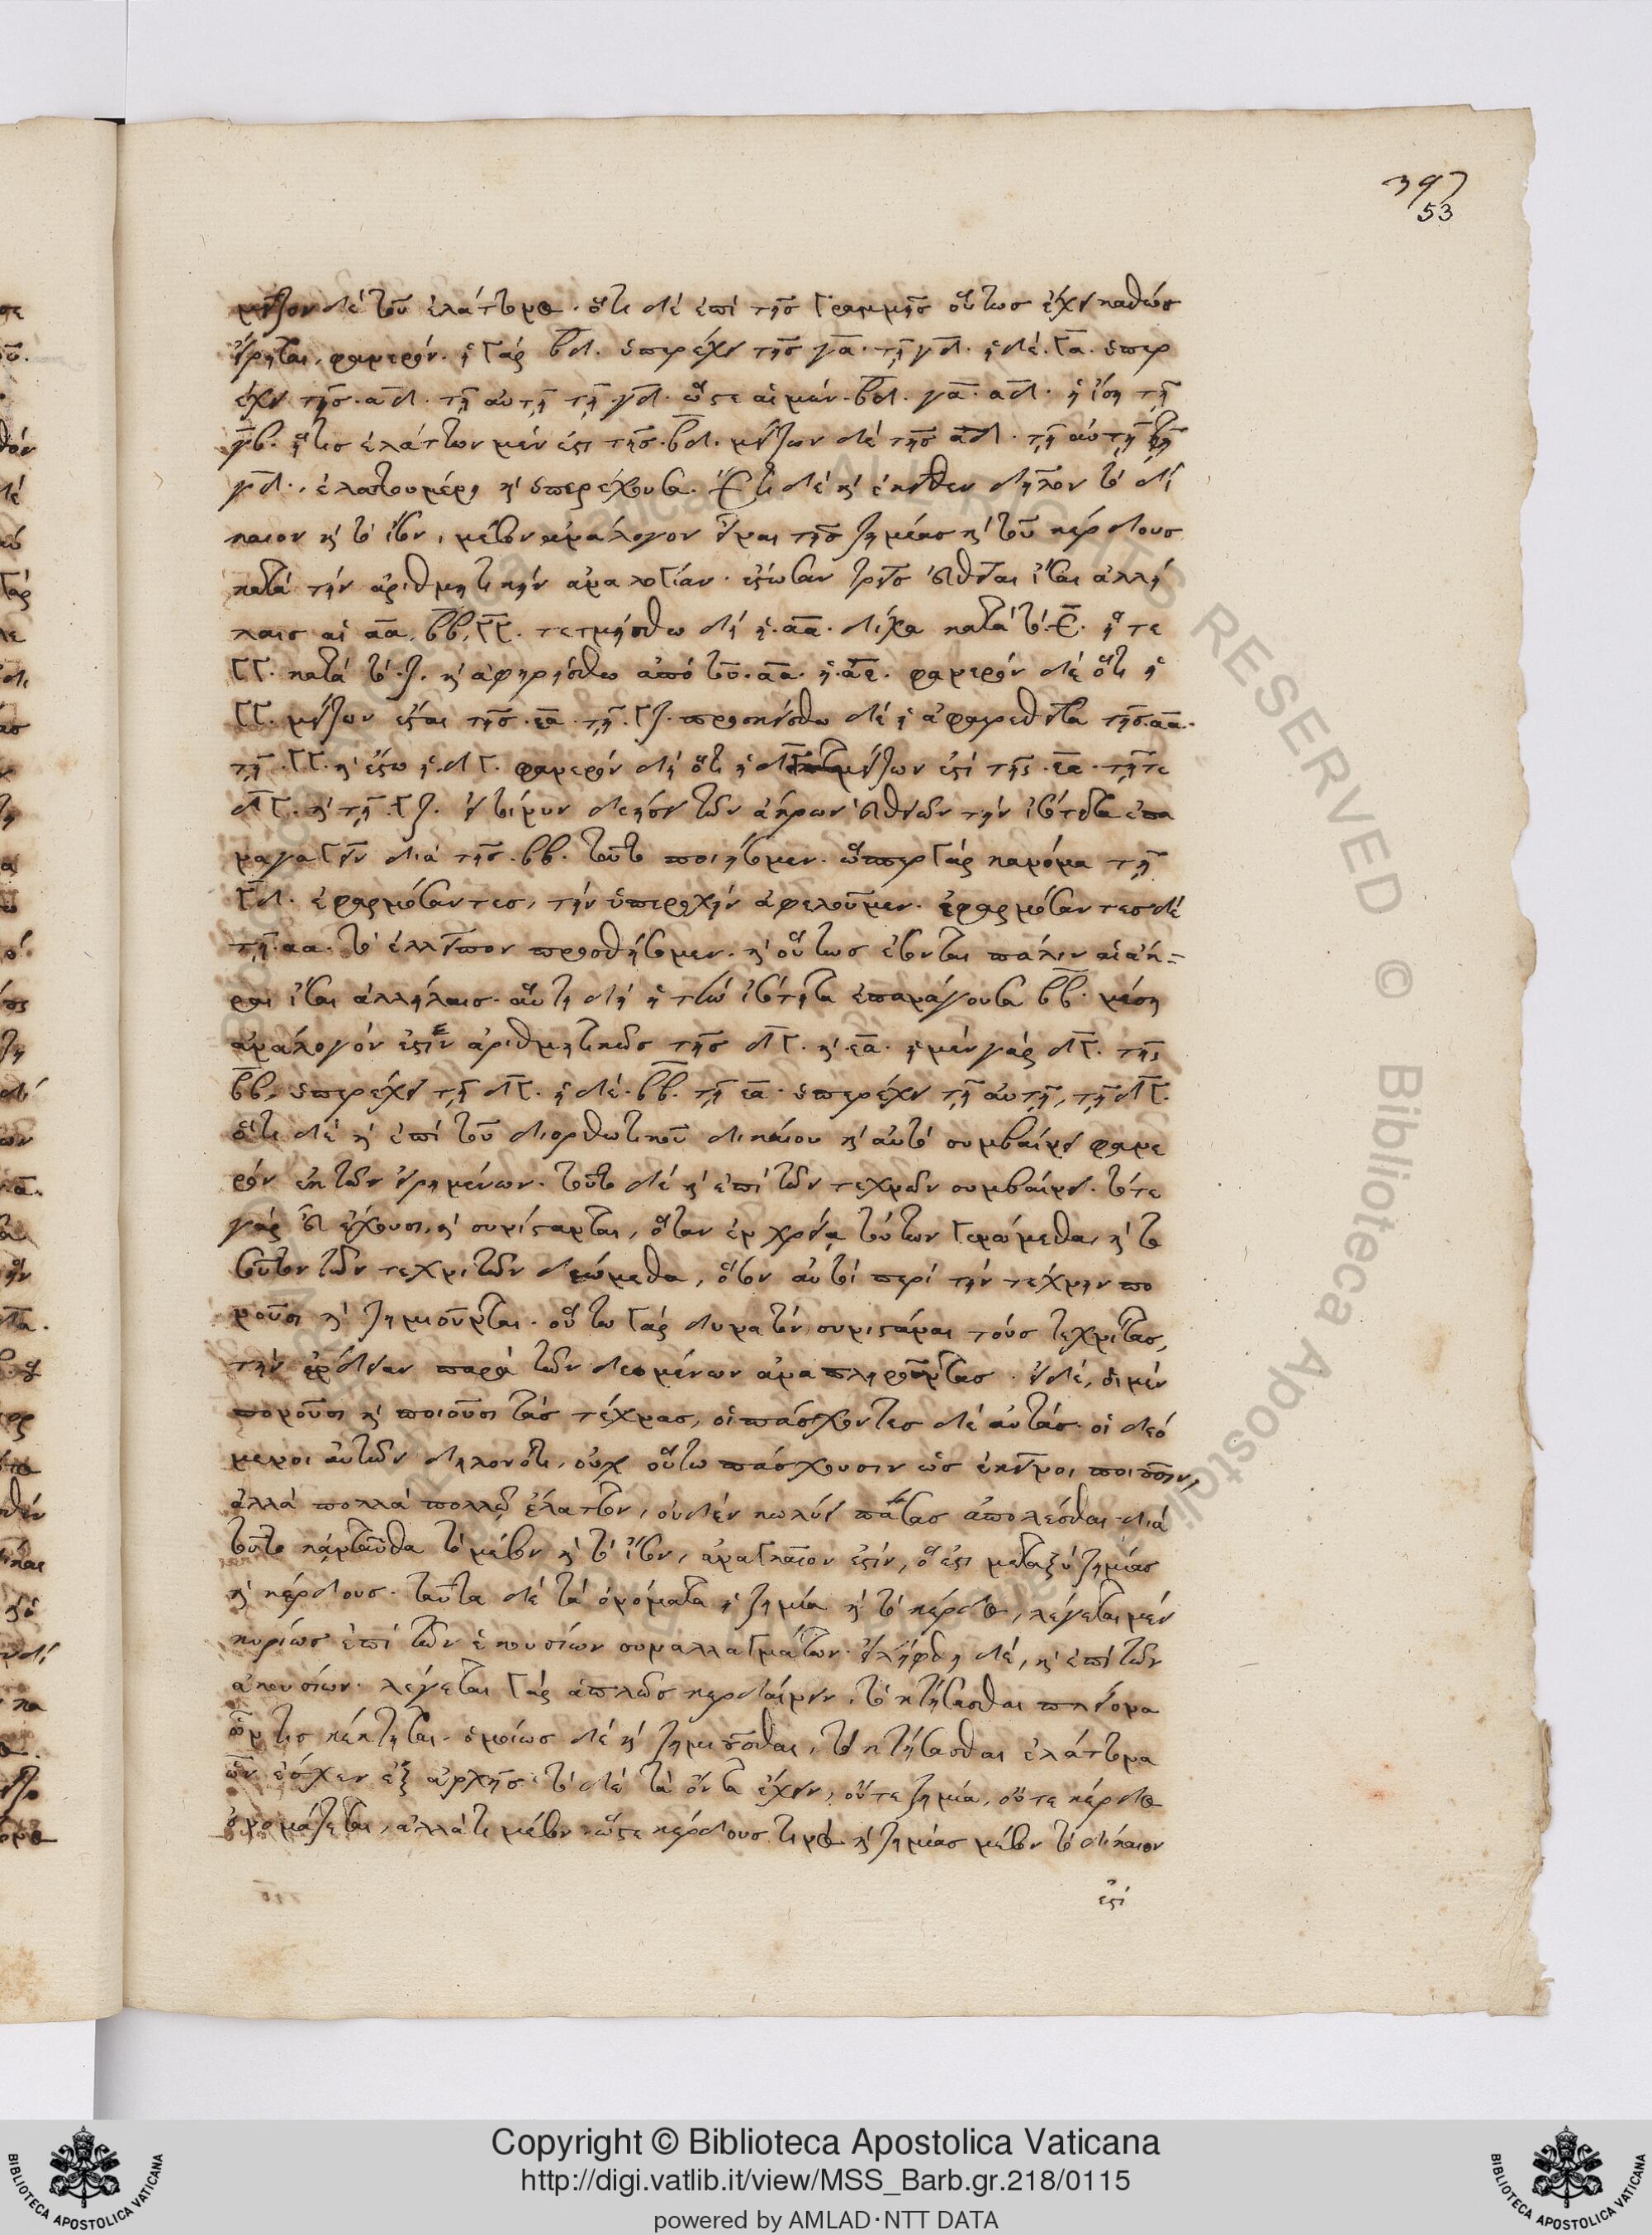 397
53
μεῖζον δὲ τοῦ ἐλάττονος. ὅτι δὲ ἐπὶ τῆς γραμμῆς οὕτως ἔχει καθὼς
εἴρηται, φανερόν. ἡ γὰρ βδ. ὑπερέχει τῆς γα. τῇ γδ. ἡ δὲ. γα. ὑπερ
έχει τῆς. αδ. τῇ αὐτῇ τῇ γδ. ὥστε αἱ μὲν. βδ. γα. αδ. ἡ ἴση τῇ
γβ. ἥτις ἐλάττων μέν ἐστι τῆς. βδ. μείζων δὲ τῆς αδ. τῇ αὐτῇ τῇ
γδ., ἐλαττουμένη καὶ ὑπερέχουσα. Ἔτι δὲ καὶ ἐκεῖθεν δῆλον τὸ δί
καιον καὶ τὸ ἴσον, μέσον ἀνάλογον εἶναι τῆς ζημίας καὶ τοῦ κέρδους
κατὰ τὴν ἀριθμητικὴν ἀναλογίαν. ἔστωσαν τρεῖς εὐθεῖαι ἴσαι ἀλλή
λαις αἱ αα, ββ, γγ. τετμήσθω δὴ ἡ. αα. δίχα κατὰ τὸ. ε. ἥ τε
γγ. κατὰ τὸ. ζ. καὶ ἀφῃρήσθω ἀπὸ τῆς. αα. ἡ. αε. φανερὸν δὲ ὅτι ἡ
γγ. μείζων ἔσται τῆς. εα. τῇ. γζ. προσκείσθω δὲ ἡ ἀφαιρεθεῖσα τῆς. αα.
τῇ. γγ. καὶ ἔστω ἡ. δγ. φανερὸν δὴ ὅτι ἡ δγ μείζων ἐστὶ τῆς. εα. τῇ τε
δγ. καὶ τῇ. γζ. εἰ τοίνυν δεήσει τῶν ἄκρων εὐθειῶν τὴν ἰσότητα ἐπα
ναγαγεῖν διὰ τῆς. ββ. τοῦτο ποιήσομεν. ὥσπερ γὰρ κανόνα τῇ
γδ. ἐφαρμόσαντες, τὴν ὑπεροχὴν ἀφελοῦμεν. ἐφαρμόσαντες δὲ
τῇ. αα. τὸ ἐλλεῖπον προσθήσομεν. καὶ οὕτως ἔσονται πάλιν αἱ ἄκ-
ραι ἴσαι ἀλλήλαις. αὕτη δὴ ἡ τὴν ἰσότητα ἐπανάγουσα ββ. μέση
ἀνάλογόν ἐστιν ἀριθμητικῶς τῆς δγ. καὶ εα. ἡ μὲν γὰρ δγ. τῆς
ββ, ὑπερέχει τῇ δγ. ἡ δὲ. ββ. τῇ εα. ὑπερέχει τῇ αὐτῇ, τῇ δγ.
ὅτι δὲ καὶ ἐπὶ τοῦ διορθωτικοῦ δικαίου καὶ αὐτὸ συμβαίνει φανε
ρὸν ἐκ τῶν εἰρημένων. τοῦτο δὲ καὶ ἐπὶ τῶν τεχνῶν συμβαίνει. τότε
γὰρ εὖ ἔχουσι, καὶ συνίστανται, ὅταν ἐν χρείᾳ τούτων γενώμεθα, καὶ το
σοῦτον τῶν τεχνιτῶν δεώμεθα, ὅσον αὐτοὶ περὶ τὴν τέχνην πο
νοῦσι καὶ ζημιοῦνται. οὕτω γὰρ δυνατὸν συνιστάναι τοὺς τεχνίτας,
τὴν ἔνδειαν παρὰ τῶν δεομένων ἀναπληροῦντας. εἰ δὲ, οἱ μὲν
πονοῦσι καὶ ποιοῦσι τὰς τέχνας, οἱ πάσχοντες δὲ αὐτὰς οἱ δεό
μενοι αὐτῶν δηλονότι, οὐχ οὕτω πάσχουσιν ὡς ἐκεῖνοι ποιοῦσιν,
ἀλλὰ πολλὰ πολλῷ ἔλαττον, οὐδὲν κωλύει πάσας ἀπολέσθαι. διὰ
τοῦτο κἀνταῦθα τὸ μέσον καὶ τὸ ἴσον, ἀναγκαῖόν ἐστιν, ὅ ἐστι μεταξὺ ζημίας
καὶ κέρδους. ταῦτα δὲ τὰ ὀνόματα ἡ ζημία καὶ τὸ κέρδος, λέγεται μὲν
κυρίως ἐπὶ τῶν ἑκουσίων συναλλαγμάτων. εἴληφθη δὲ, καὶ ἐπὶ τῶν
ἀκουσίων. λέγεται γὰρ ἁπλῶς κερδαίνειν, τὸ κτήσασθαι πλείονα
ὧν τις κέκτηται. ὁμοίως δὲ καὶ ζημιοῦσθαι, τὸ κτήσασθαι ἐλάττονα
ὧν ἔσχεν ἐξ ἀρχῆς. τὸ δὲ τὰ ὄντα ἔχειν, οὔτε ζημία, οὔτε κέρδος
ὀνομάζεται, ἀλλά τι μέσον. ὥστε κέρδους τινὸς καὶ ζημίας μέσον τὸ δίκαιον
ἐστί
Copyright © Biblioteca Apostolica Vaticana
http://digi.vatlib.it/view/MSS_Barb.gr.218/0115
powered by AMLAD·NTT DATA